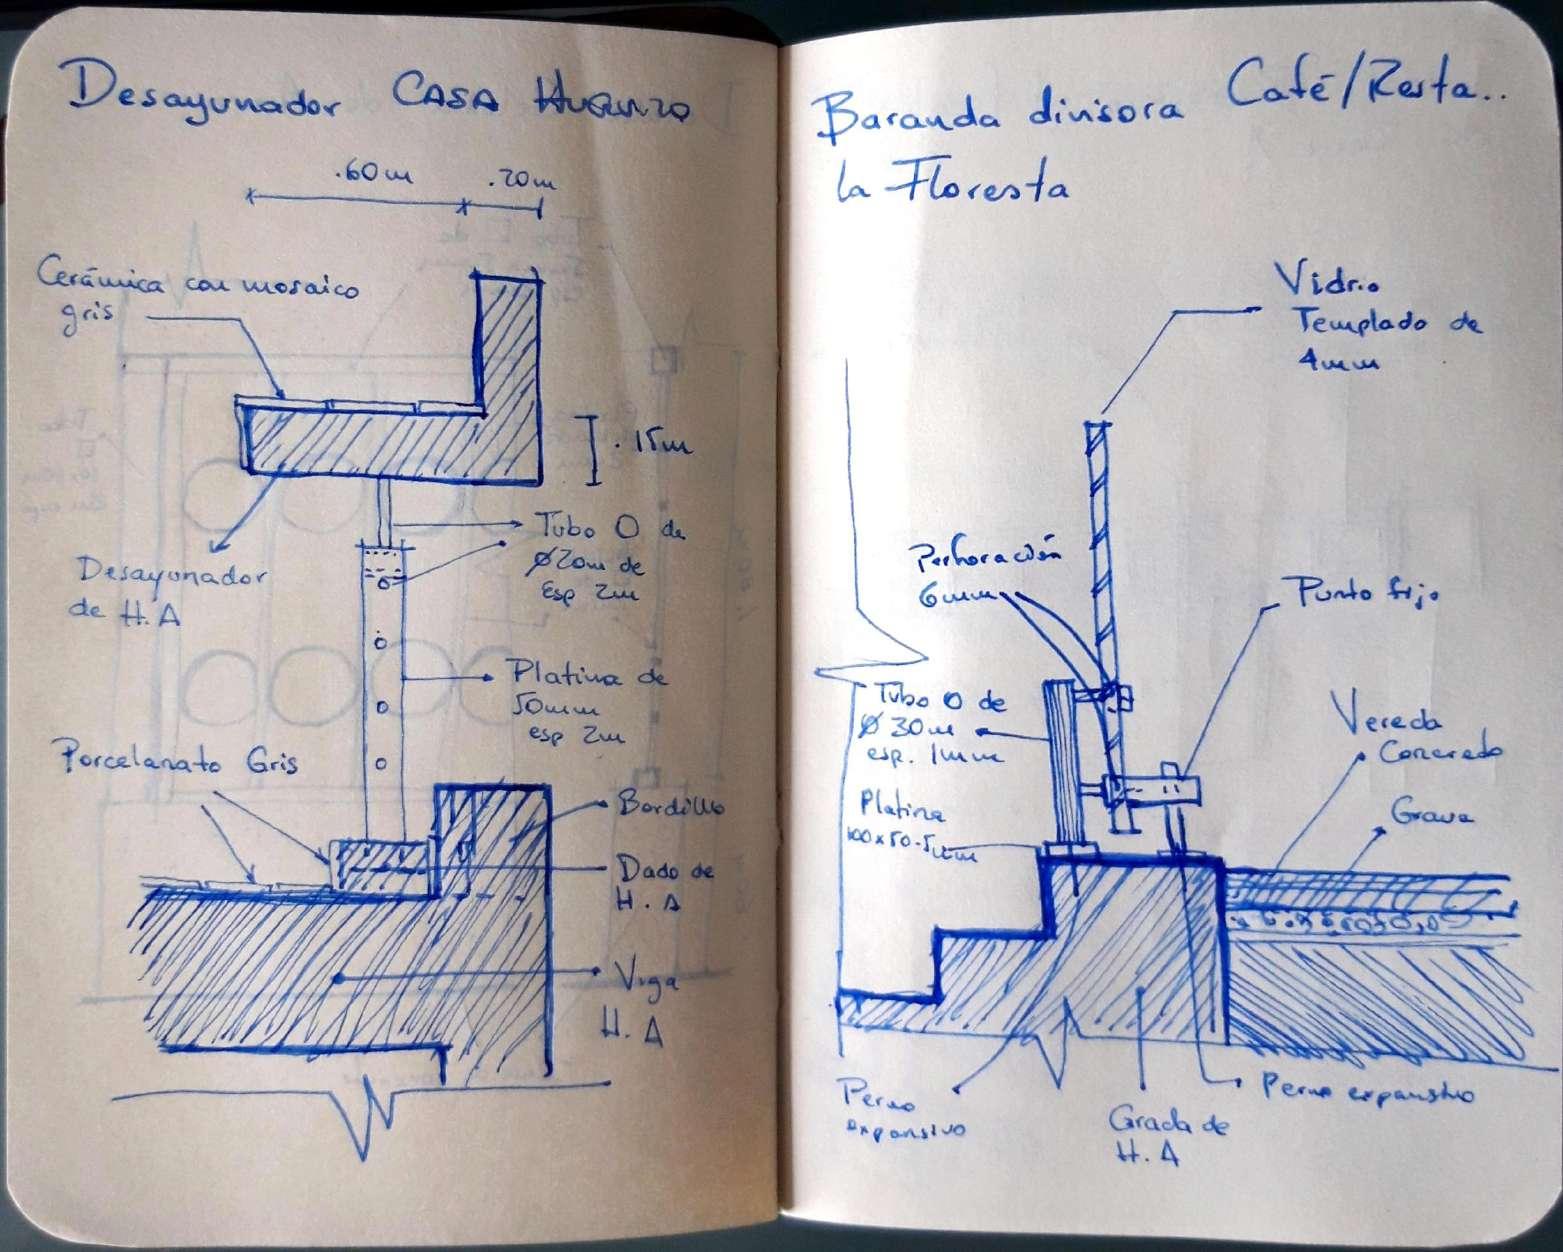 Desayunador CASA
.60m .20m
Cerámica con mosaico
gris
.15m
Tubo O de
Ø20m de
Esp 2m
Desayunador
de H.A
Platina de
50mm
esp 2m
Porcelanato Gris
Bordillo
Dado de
H.A
Viga
H.A
Baranda divisora Café/Resta..
la Floresta
Vidrio
Templado de
4mm
Perforación
6mm
Punto fijo
Tubo O de
Ø 30m
esp. 1mm
Platina
100x50.5mm
Vereda
Concredo
Grava
Perno
expansivo
Grada de
H.A
Perno expansivo